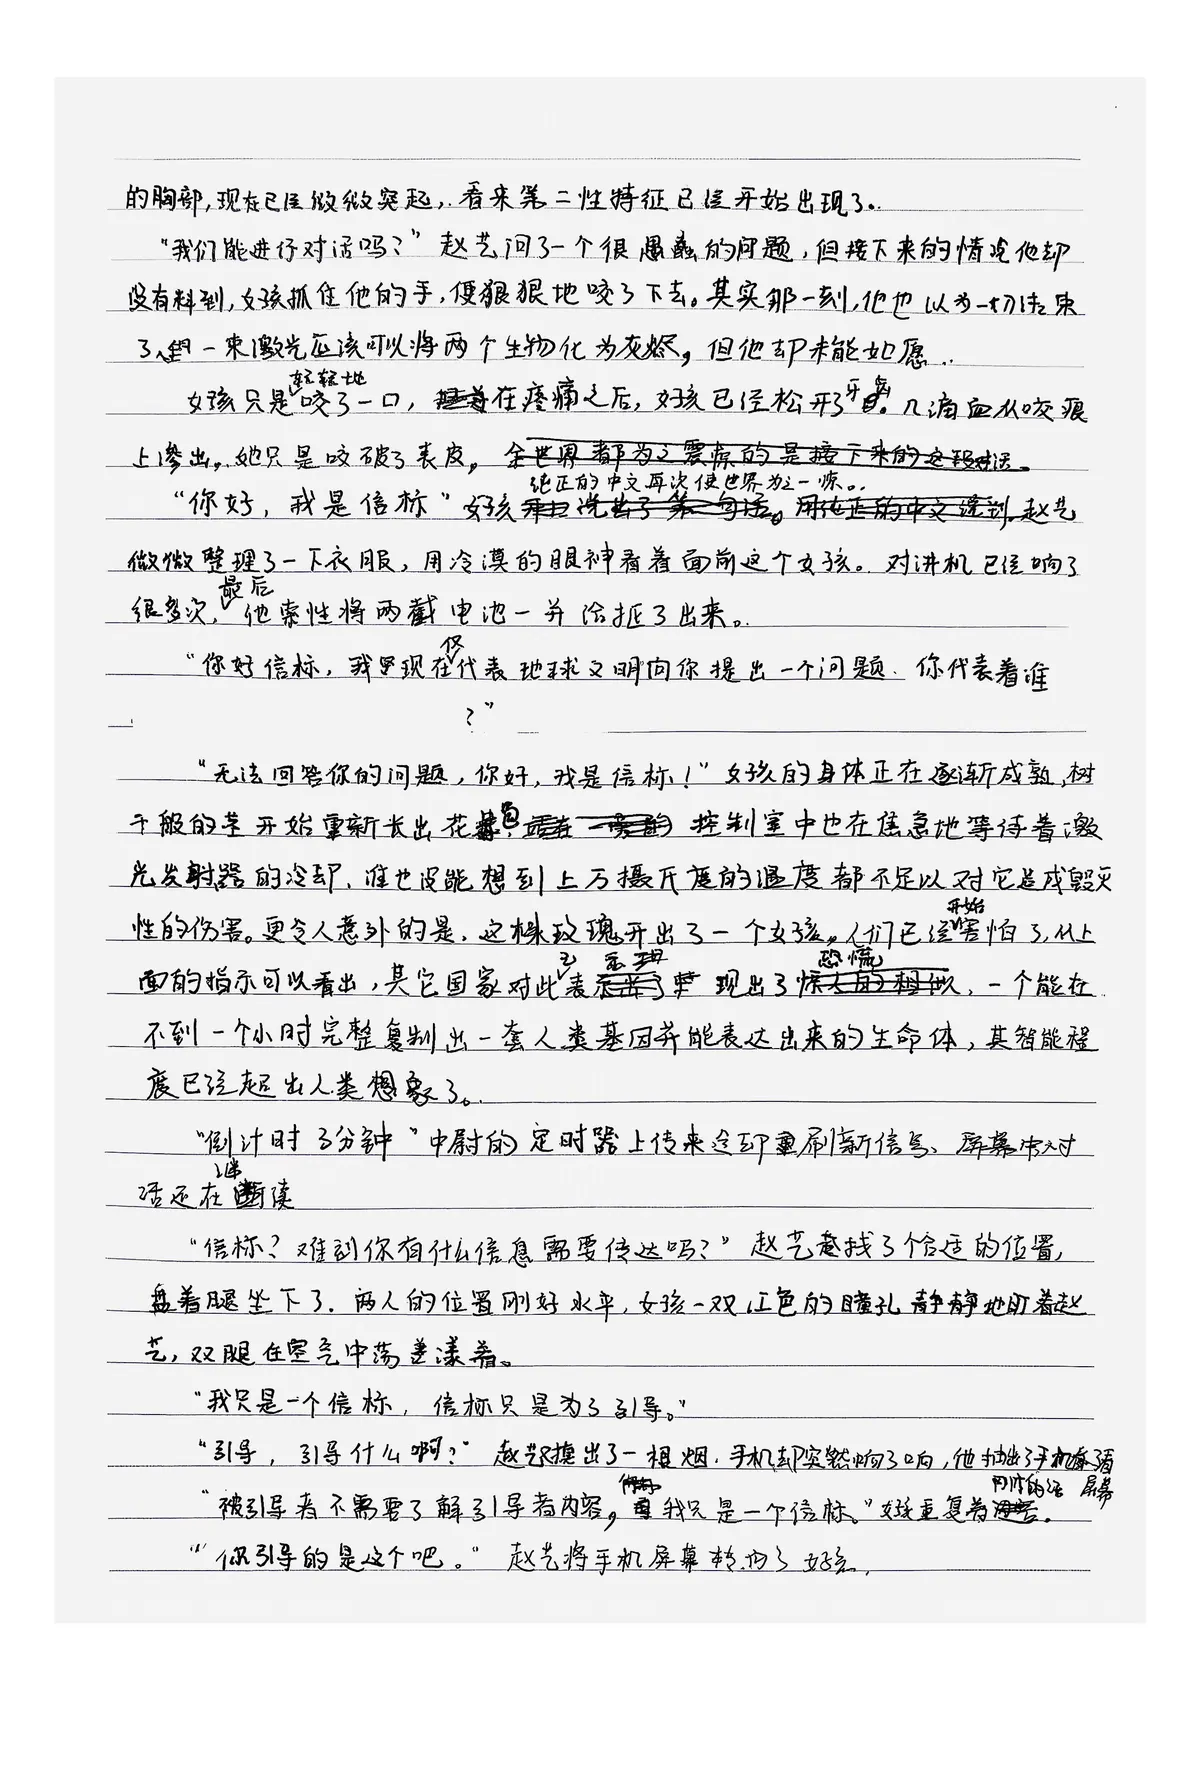 的胸部,现在已经微微突起,看来第二性特征已经开始出现了。
“我们能进行对话吗?”赵艺问了一个很愚蠢的问题,但接下来的情况他却
没有料到,女孩抓住他的手,便狠狠地咬了下去。其实那一刻,他也以为一切结束
了,一束激光应该可以将两个生物化为灰烬,但他却未能如愿。
女孩只是轻轻地咬了一口,在疼痛之后,女孩已经松开了牙齿。几滴血从咬痕
上渗出,她只是咬破了表皮。
“你好,我是信标”女孩纯正的中文再次使世界为之一惊。赵艺
微微整理了一下衣服,用冷漠的眼神看着面前这个女孩。对讲机已经响了
很多次,最后他索性将两截电池一并给抠了出来。
“你好信标,我现在仅代表地球文明向你提出一个问题.你代表着谁
?”
“无法回答你的问题,你好,我是信标!”女孩的身体正在逐渐成熟,树
干般的茎开始重新长出花苞,控制室中也在焦急地等待着激
光发射器的冷却,谁也没能想到上万摄氏度的温度都不足以对它造成毁灭
性的伤害。更令人意外的是,这株玫瑰开出了一个女孩,人们已经开始害怕了,从上
面的指示可以看出,其它国家对此已表现出了恐慌,一个能在
不到一个小时完整复制出一套人类基因并能表达出来的生命体,其智能程
度已经超出人类想象了。
“倒计时3分钟”中尉的定时器上传来冷却重刷新信号、屏幕中对
话还在继续
“信标?难到你有什么信息需要传达吗?”赵艺找了个合适的位置,
盘着腿坐下了.两人的位置刚好水平,女孩一双红色的瞳孔静静地盯着赵
艺,双腿在空气中荡漾着。
“我只是一个信标,信标只是为了引导。”
“引导,引导什么啊?”赵艺摸出了一根烟.手机却突然响了响,他抽出了手机看了看屏幕
“被引导者不需要了解引导者内容,我只是一个信标。”女孩重复着同样的话.
“你引导的是这个吧。”赵艺将手机屏幕转向了女孩,